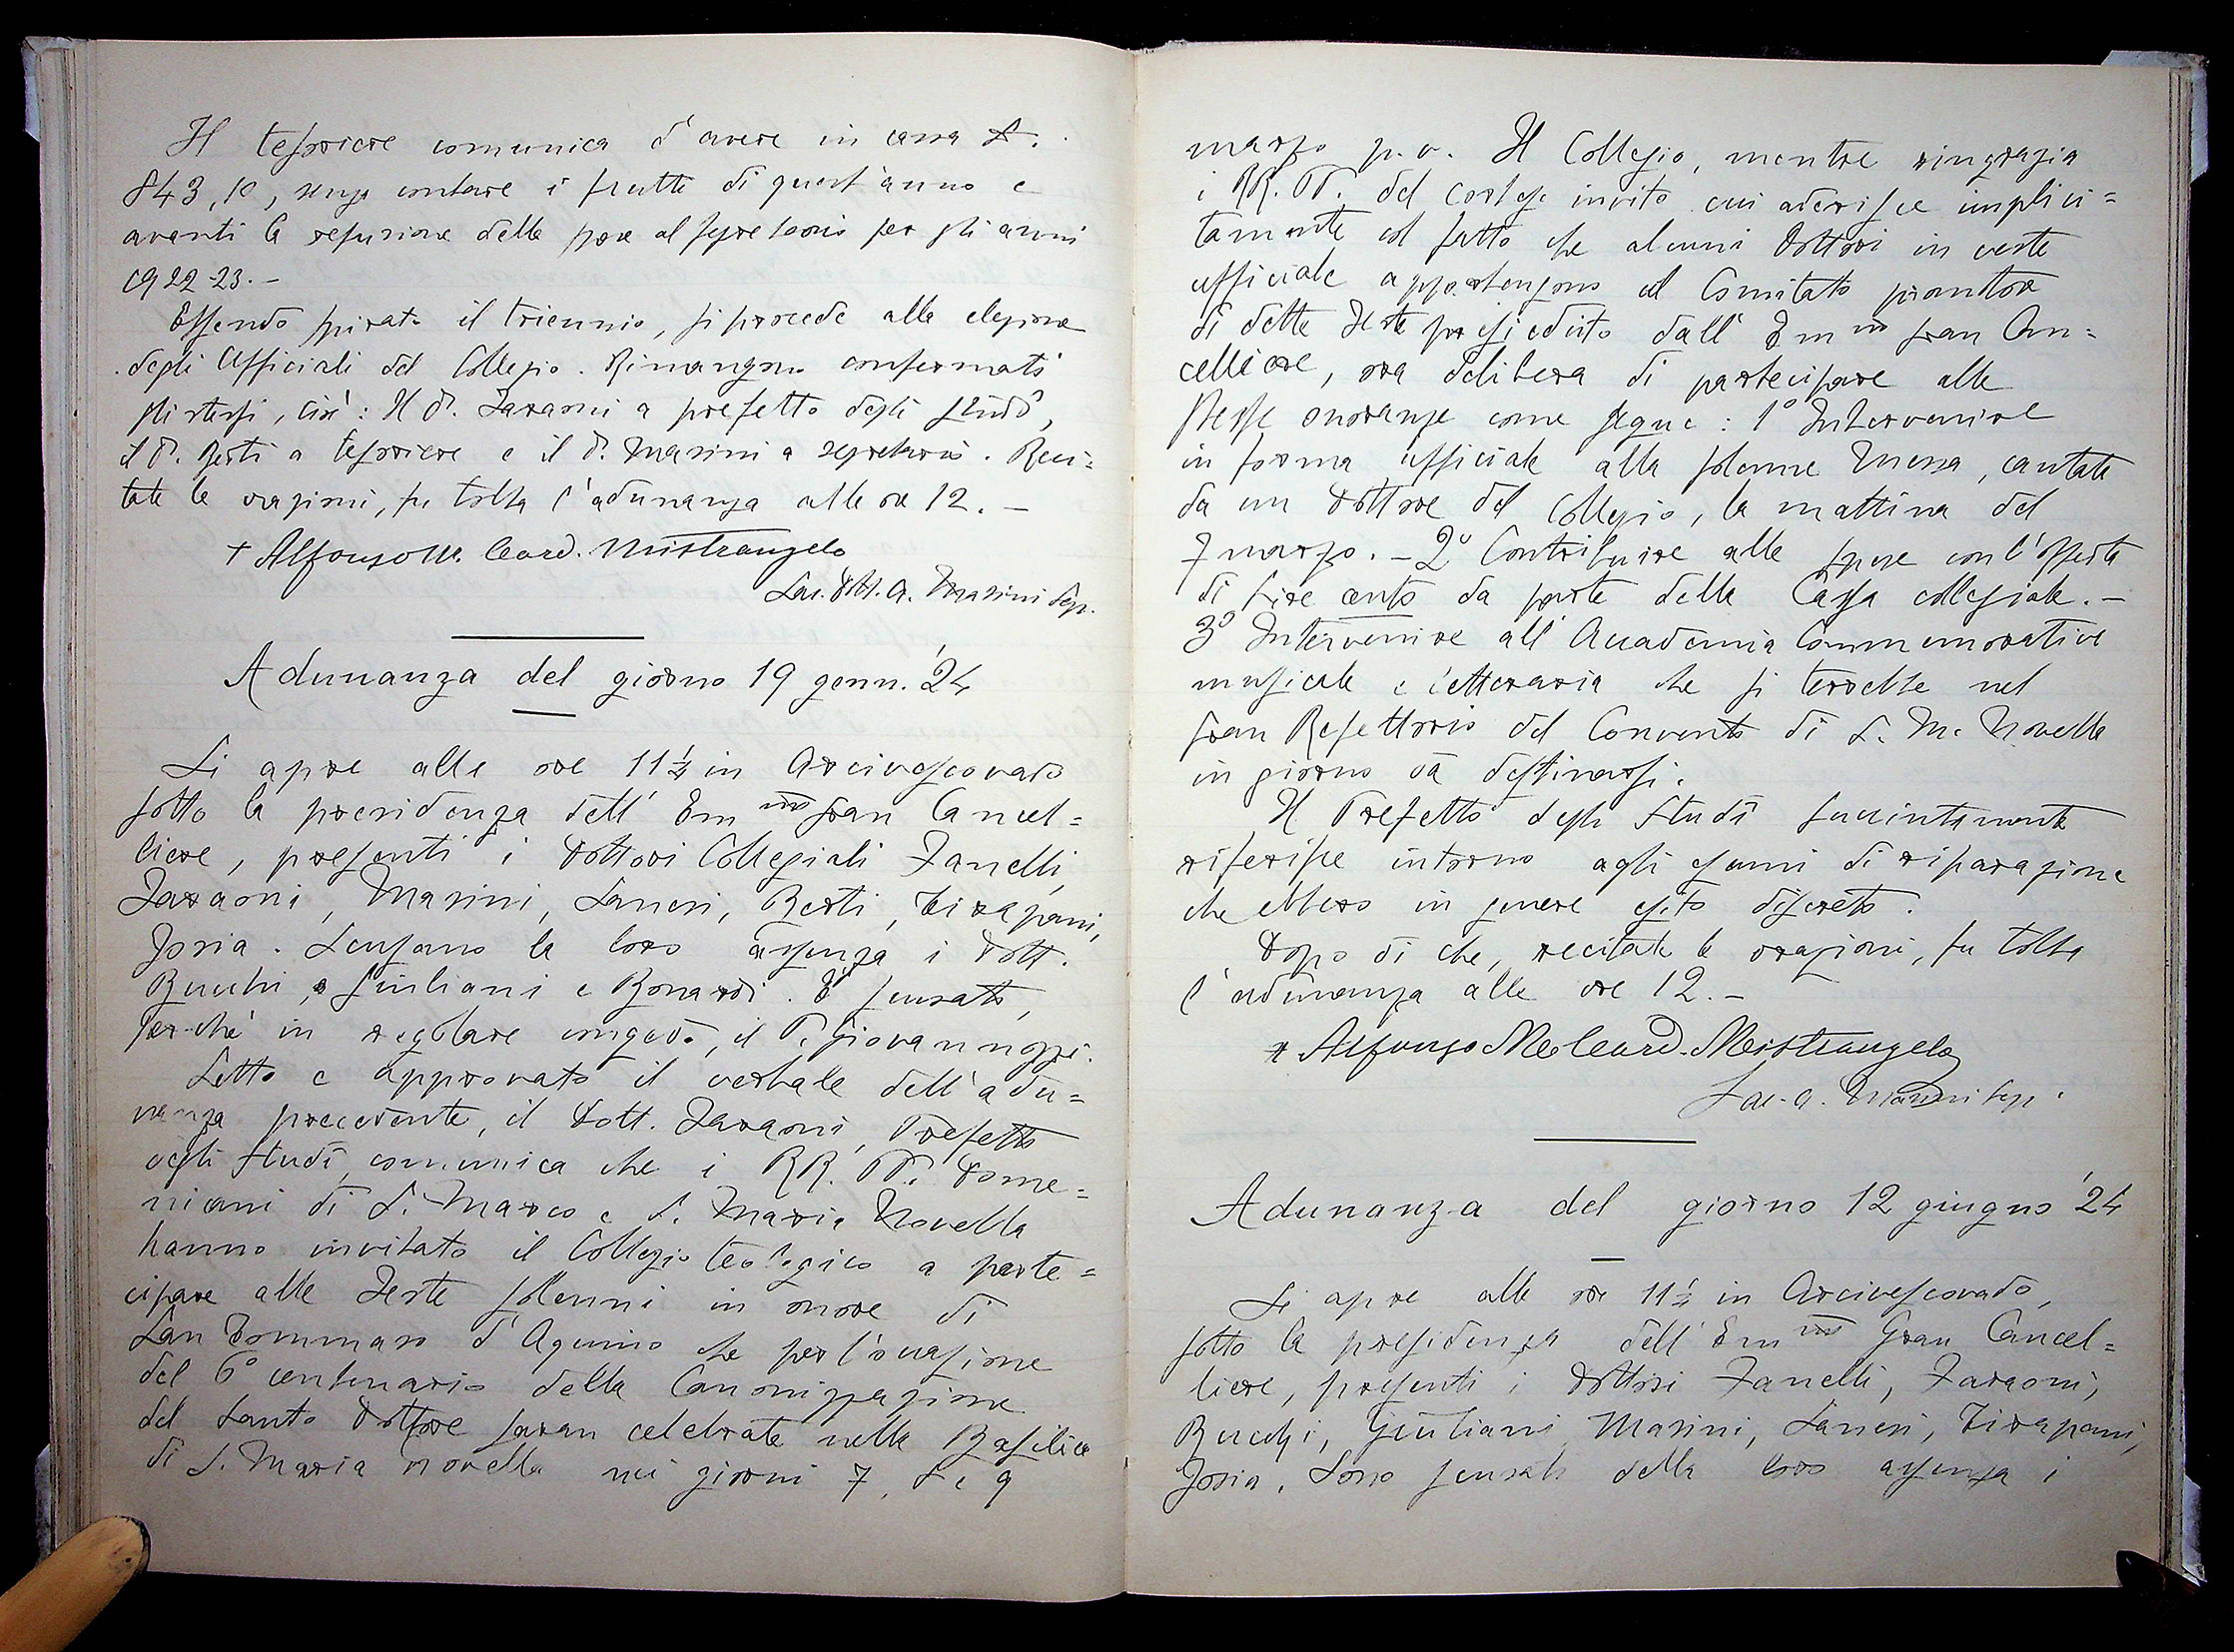 Il tesoriere comunica d'avere in cassa £.
843,10, senza contare i frutti di quest'anno e
avanti la refusione delle spese al segretario per gli anni
1922-23.-
Essendo spirato il triennio, si procede alla elezione
degli Ufficiali del Collegio. Rimangono confermati
gli stessi, cioè: Il D. Faraoni a prefetto degli studî,
il D. Berti a tesoriere e il D. Masini a segretario. Reci=
tate le orazioni, fu tolta l'adunanza alle ore 12.-
+ Alfonso M. Card. Mistrangelo
Sac. Dott. A. Masini Segr.
Adunanza del giorno 19 genn. '24
Si apre alle ore 11 1/4 in Arcivescovado
sotto la presidenza dell'Em mo Gran Cancel=
liere, presenti i Dottori Collegiali Zanelli,
Faraoni, Masini, Sanesi, Berti, Tirapani,
Joria. Scusano la loro assenza i Dott.
Bucchi, Giuliani e Bonardi. È scusato,
perchè in regolare congedo, il P. Giovannozzi.
Letto e approvato il verbale dell'adu=
nanza precedente, il Dott. Faraoni, Prefetto
degli studî, comunica che i RR. PP. Dome=
nicani di S. Marco e S. Maria Novella
hanno invitato il Collegio teologico a parte=
cipare alle Feste solenni in onore di
San Tommaso d'Aquino che per l'occasione
del 6° centenario della Canonizzazione
del Santo Dottore saran celebrate nella Basilica
di S. Maria Novella nei giorni 7, 8 e 9
marzo p.v. Il Collegio, mentre ringrazia
i RR. PP. del cortese invito cui aderisce implici=
tamente col fatto che alcuni Dottori in veste
ufficiale appartengono al Comitato promotore
di dette Feste presieduto dall'Em mo Gran Can=
celliere, ora delibera di partecipare alle
stesse onoranze come segue: 1° Intervenire
in forma ufficiale alla solenne Messa, cantata
da un Dottore del Collegio, la mattina del
7 marzo.- 2° Contribuire alle spese con l'offerta
di Lire cento da parte della Cassa collegiale.-
3° Intervenire all'Accademia Commemorativa
musicale e letteraria che si terrebbe nel
Gran Refettorio del Convento di S. M. Novella
in giorno da destinarsi.
Il Prefetto degli Studî succintamente
riferisce intorno agli esami di riparazione
che ebbero in genere esito discreto.
Dopo di che, recitate le orazioni, fu tolta
l'adunanza alle ore 12.-
+ Alfonso M. Card. Mistrangelo
Sac. A. Masini Segr.
Adunanza del giorno 12 giugno '24
Si apre alle ore 11 1/4 in Arcivescovado,
sotto la presidenza dell'Em mo Gran Cancel=
liere, presenti i Dottori Zanelli, Faraoni,
Bucchi, Giuliani, Masini, Sanesi, Tirapani,
Joria. Sono scusati della loro assenza i